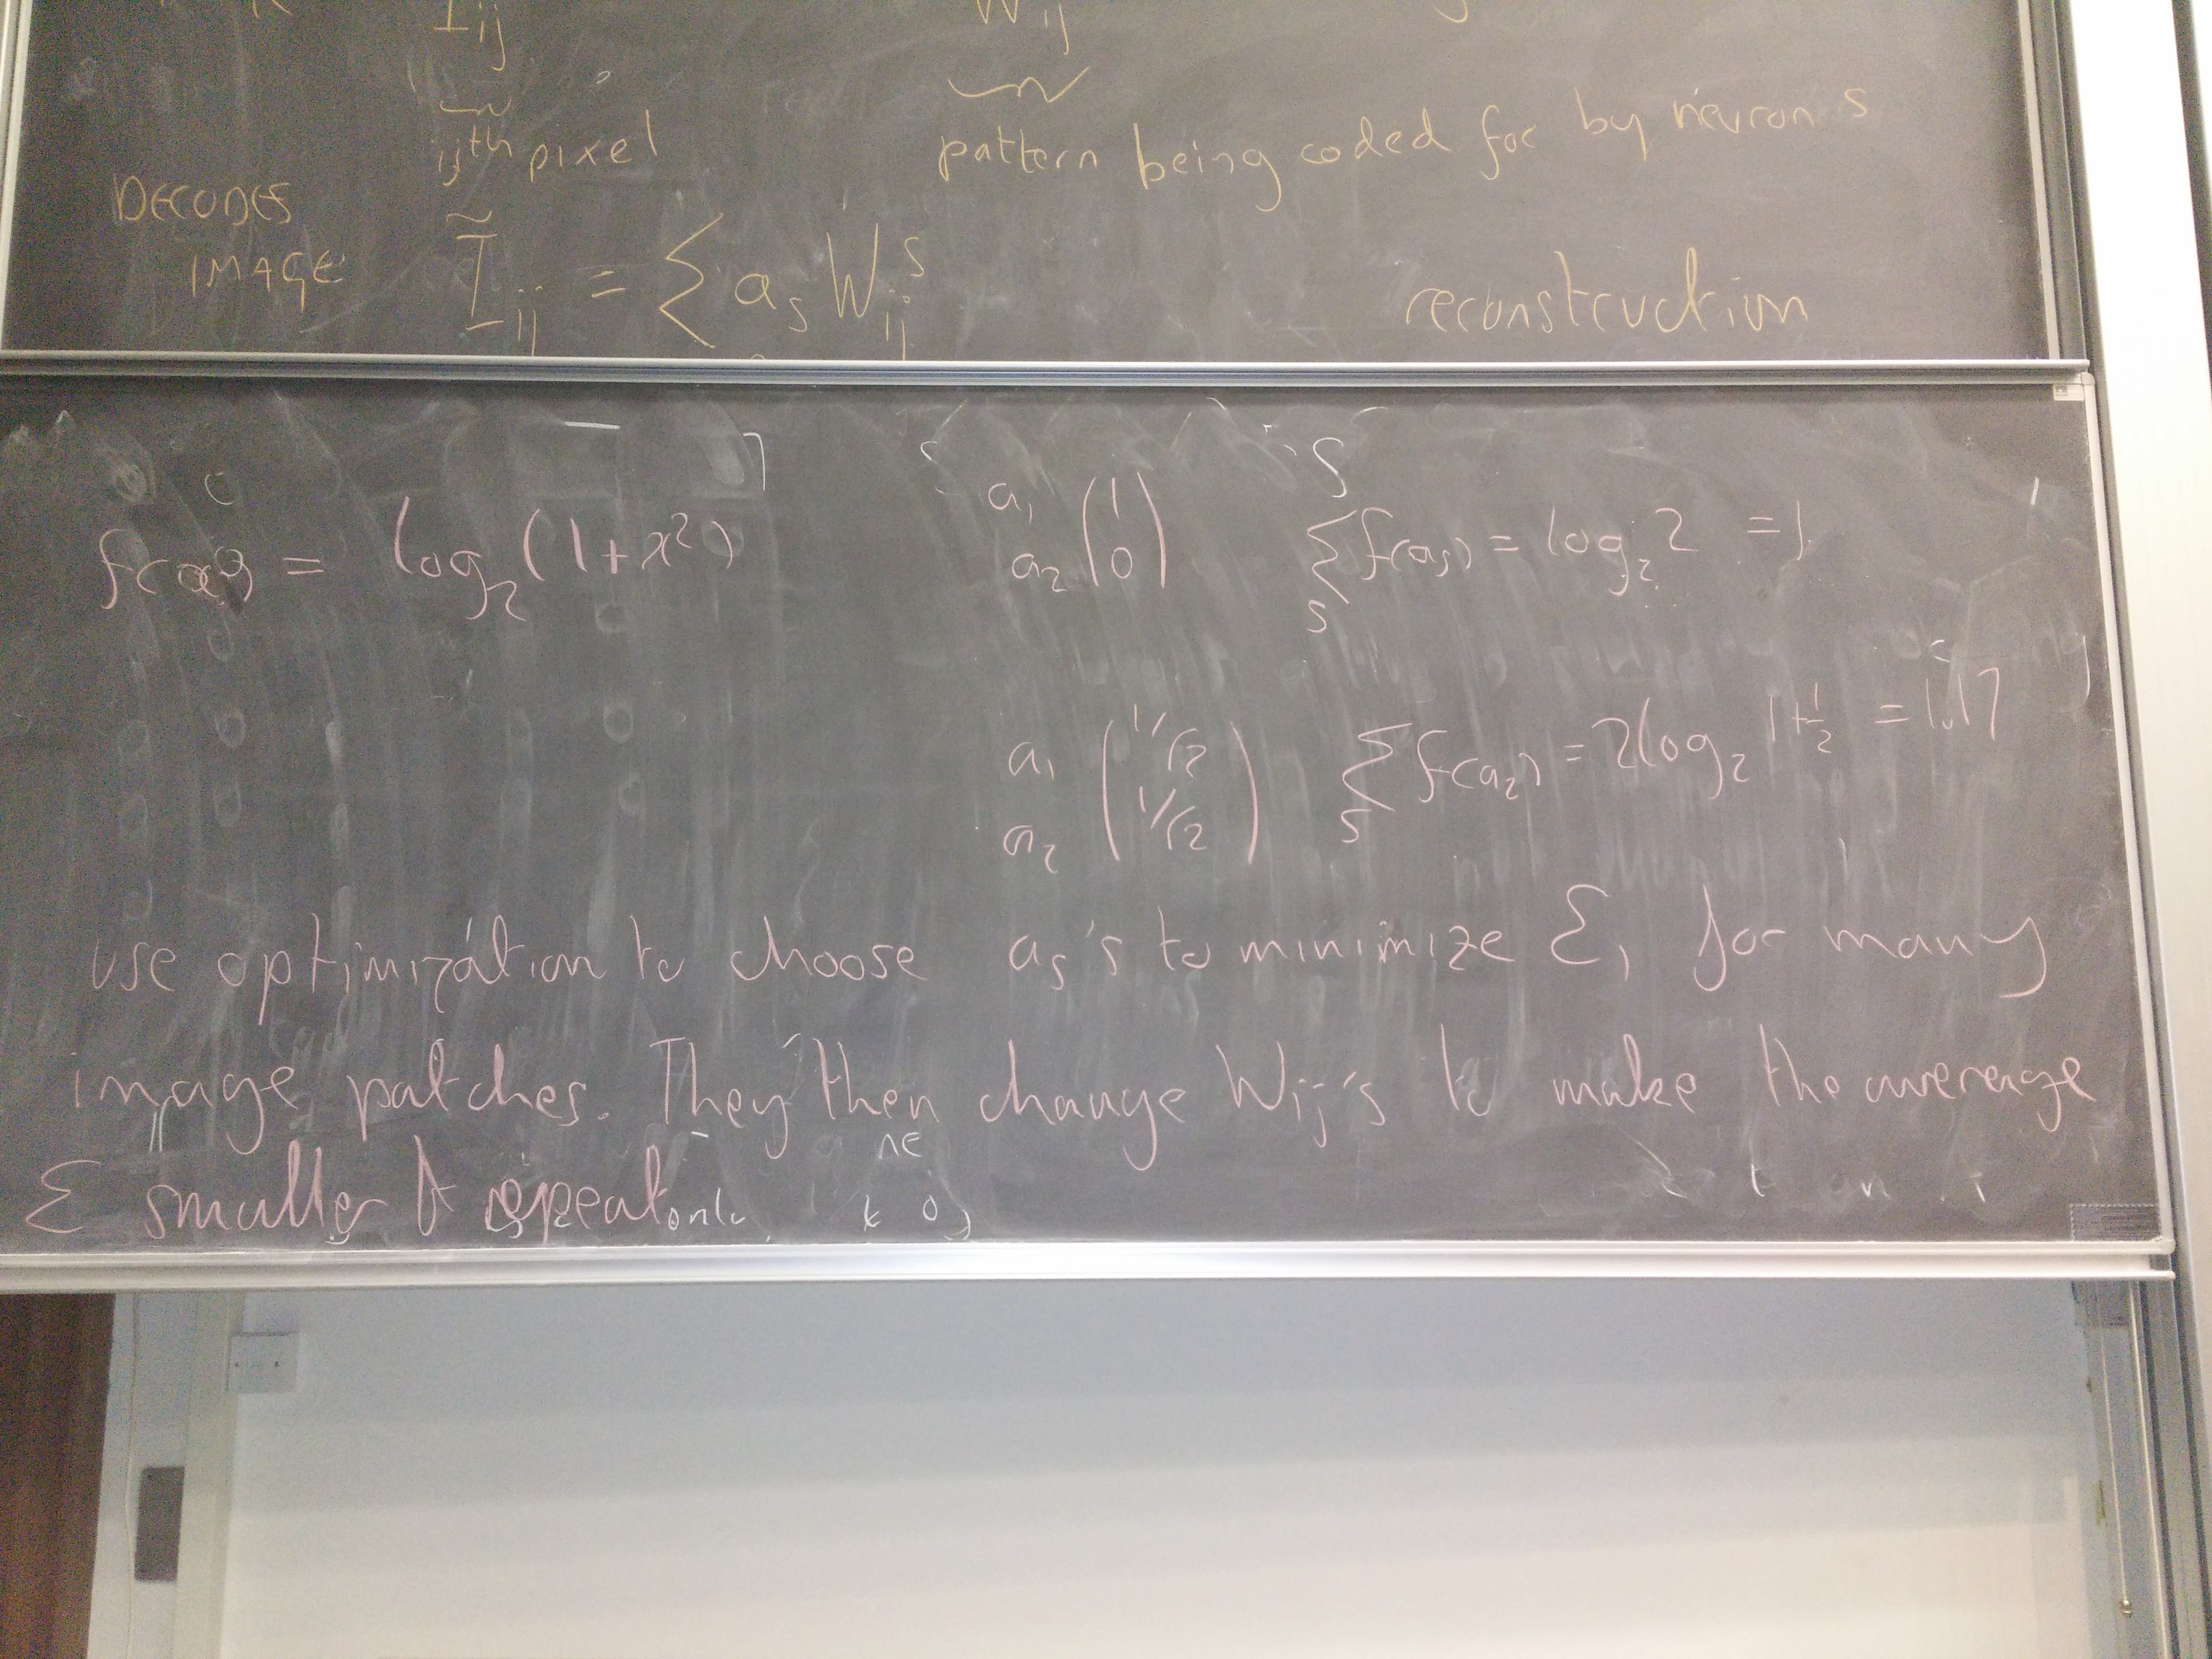 I_ij W_ij
ijth pixel
pattern being coded for by neuron s
DECODES
IMAGE
Ĩ_ij = Σ a_s W^s_ij
reconstruction
f(x) = log_2 (1+x²)
a_1 (1
a_2 0)
Σ_s f(a_s) = log_2 2 = 1
a_1 (1/√2
a_2 1/√2)
Σ_s f(a_2) = 2log_2 1+1/2 = 1.17
use optimization to choose a_s's to minimize Ɛ, for many
image patches. They then change W_ij's to make the average
Ɛ smaller & repeat